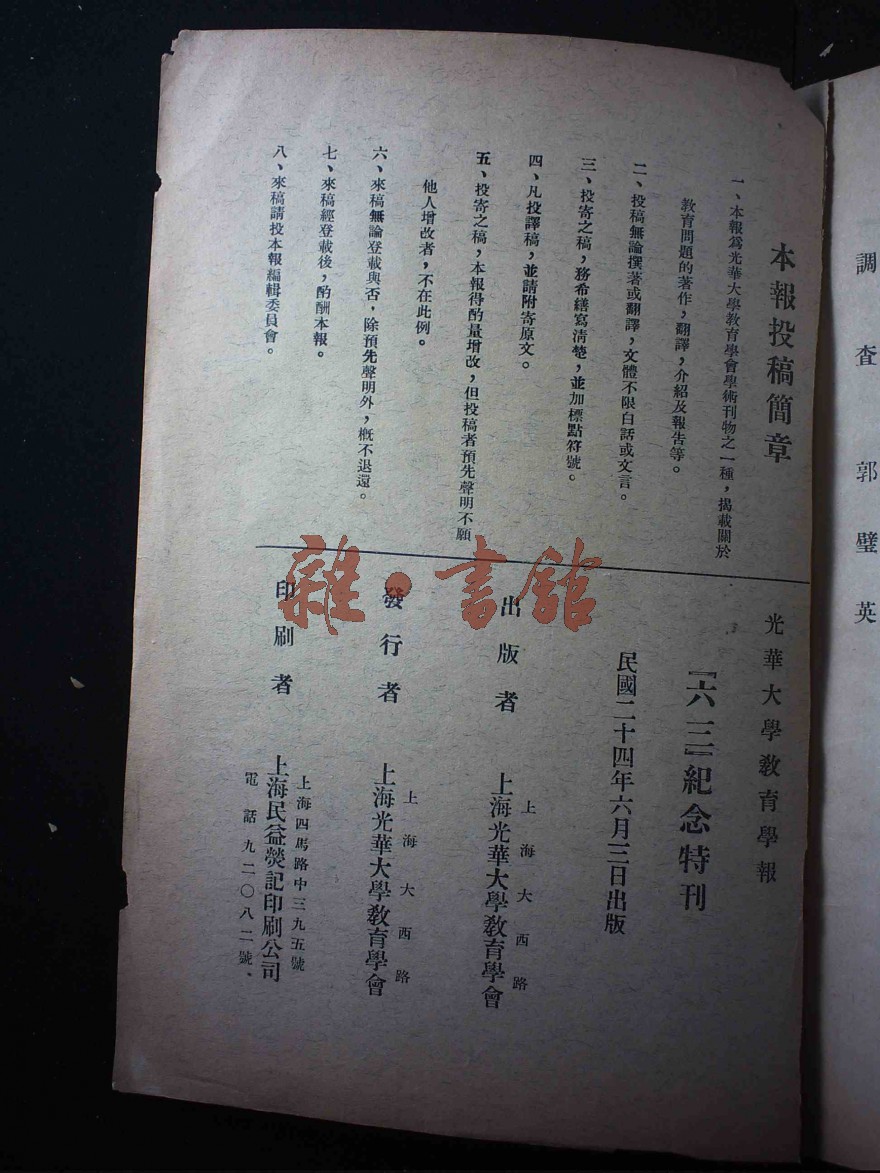 調查 郭璧英
本報投稿簡章
一、本報爲光華大學教育學會學術刊物之一種，揭載關於
教育問題的著作，翻譯，介紹及報告等。
二、投稿無論撰著或翻譯，文體不限白話或文言。
三、投寄之稿，務希繕寫清楚，並加標點符號。
四、凡投譯稿，並請附寄原文。
五、投寄之稿，本報得酌量增改，但投稿者預先聲明不願
他人增改者，不在此例。
六、來稿無論登載與否，除預先聲明外，概不退還。
七、來稿經登載後，酌酬本報。
八、來稿請投本報編輯委員會。
光華大學敎育學報
『六三』紀念特刊
民國二十四年六月三日出版
出版者
上海大西路
上海光華大學敎育學會
發行者
上海大西路
上海光華大學敎育學會
印刷者
上海四馬路中三九五號
上海民益熒記印刷公司
電話九二〇八二號、
雜·書館